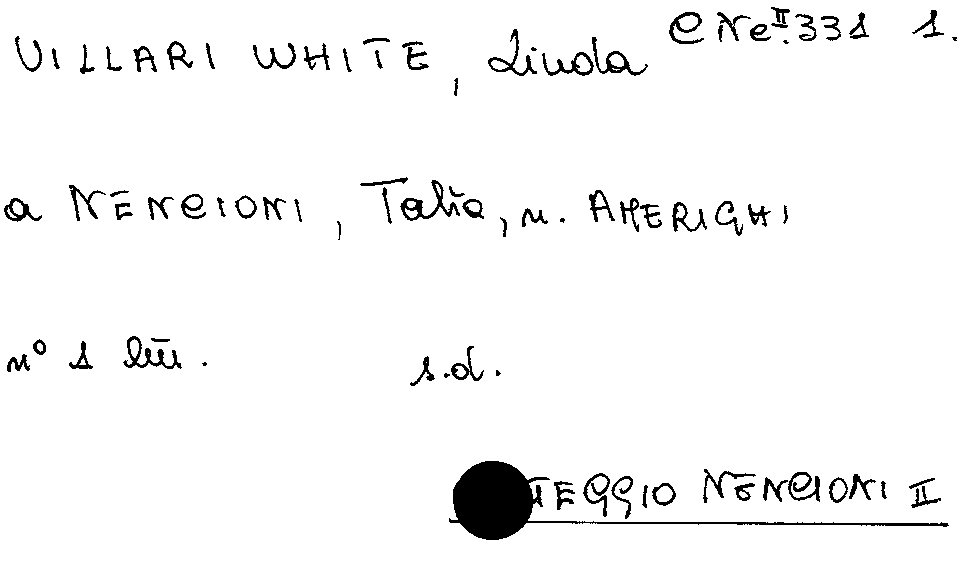 VILLARI WHITE, Linda C Ne II. 331 1.
a NENCIONI, Talia, n. AMERIGHI
n° 1 lett.
s.d.
TEGGIO NENCIONI II